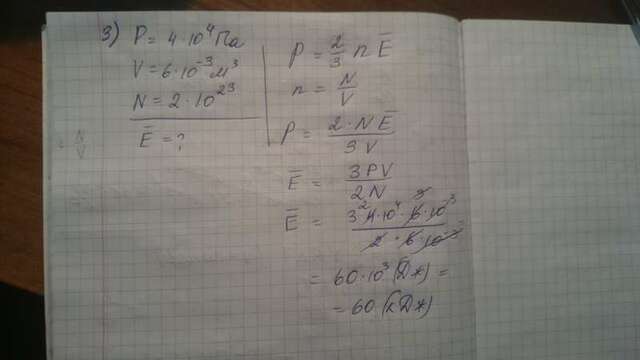 3) P = 4·10⁴ Па
V = 6·10⁻³ м³
N = 2·10²³
Ē = ?
P = 2/3 n Ē
n = N/V
P = 2·NĒ / 3V
Ē = 3PV / 2N
Ē = 3·4²·10⁴·6³·10⁻³ / 2·6·10⁻³ =
= 60·10³ (Дж) =
= 60 (кДж)